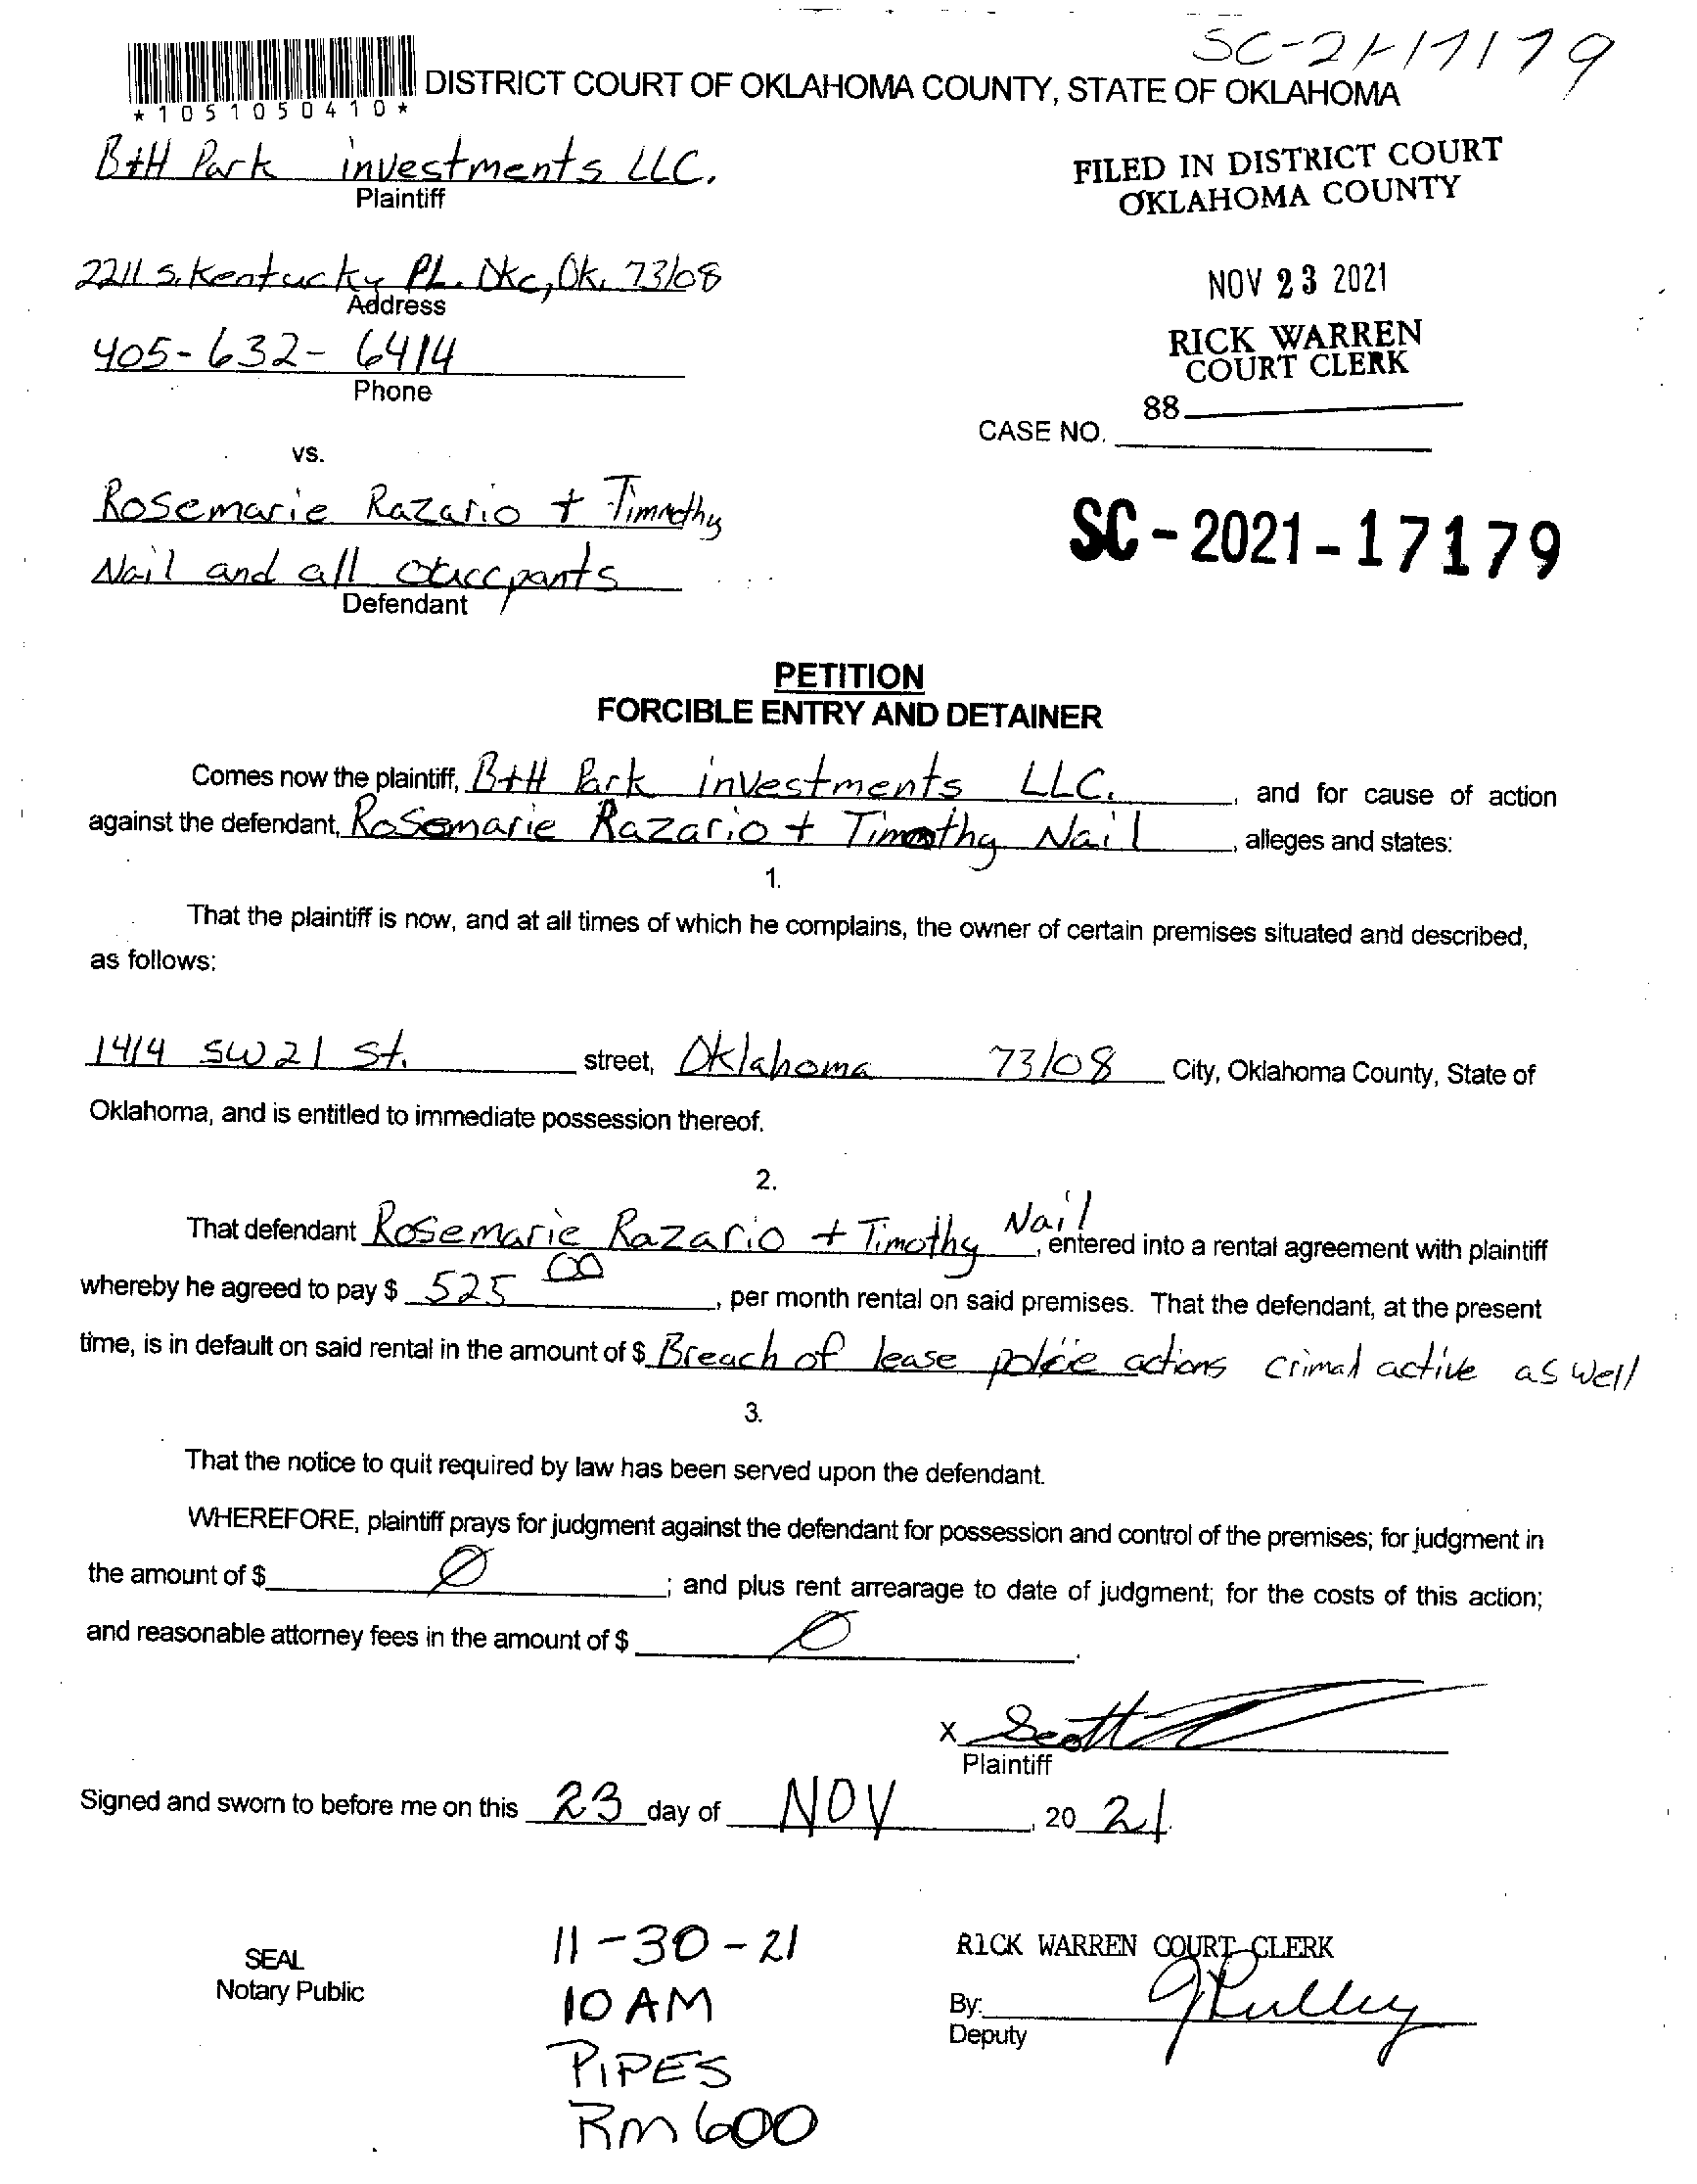 SC-21-17179
DISTRICT COURT OF OKLAHOMA COUNTY, STATE OF OKLAHOMA
*1051050410*
B+H Park investments LLC.
Plaintiff
FILED IN DISTRICT COURT
OKLAHOMA COUNTY
2211 S. Kentucky PL. Okc, Ok. 73108
Address
NOV 23 2021
405-632-6414
Phone
RICK WARREN
COURT CLERK
88
CASE NO.
vs.
Rosemarie Razario + Timothy
Nail and all occpants
Defendant
SC-2021-17179
PETITION
FORCIBLE ENTRY AND DETAINER
Comes now the plaintiff, B+H Park investments LLC. , and for cause of action
against the defendant, Rosemarie Razario + Timothy Nail , alleges and states:
1.
That the plaintiff is now, and at all times of which he complains, the owner of certain premises situated and described,
as follows:
1414 SW 21 St. street, Oklahoma 73108 City, Oklahoma County, State of
Oklahoma, and is entitled to immediate possession thereof.
2.
That defendant Rosemarie Razario + Timothy Nail , entered into a rental agreement with plaintiff
whereby he agreed to pay $ 525 00 , per month rental on said premises. That the defendant, at the present
time, is in default on said rental in the amount of $ Breach of lease police actions crimal active as well
3.
That the notice to quit required by law has been served upon the defendant.
WHEREFORE, plaintiff prays for judgment against the defendant for possession and control of the premises; for judgment in
the amount of $ Ø ; and plus rent arrearage to date of judgment; for the costs of this action;
and reasonable attorney fees in the amount of $ Ø .
X Scott
Plaintiff
Signed and sworn to before me on this 23 day of NOV , 20 21
SEAL
Notary Public
11-30-21
10 AM
PIPES
RM 600
RICK WARREN COURT CLERK
By:
Deputy